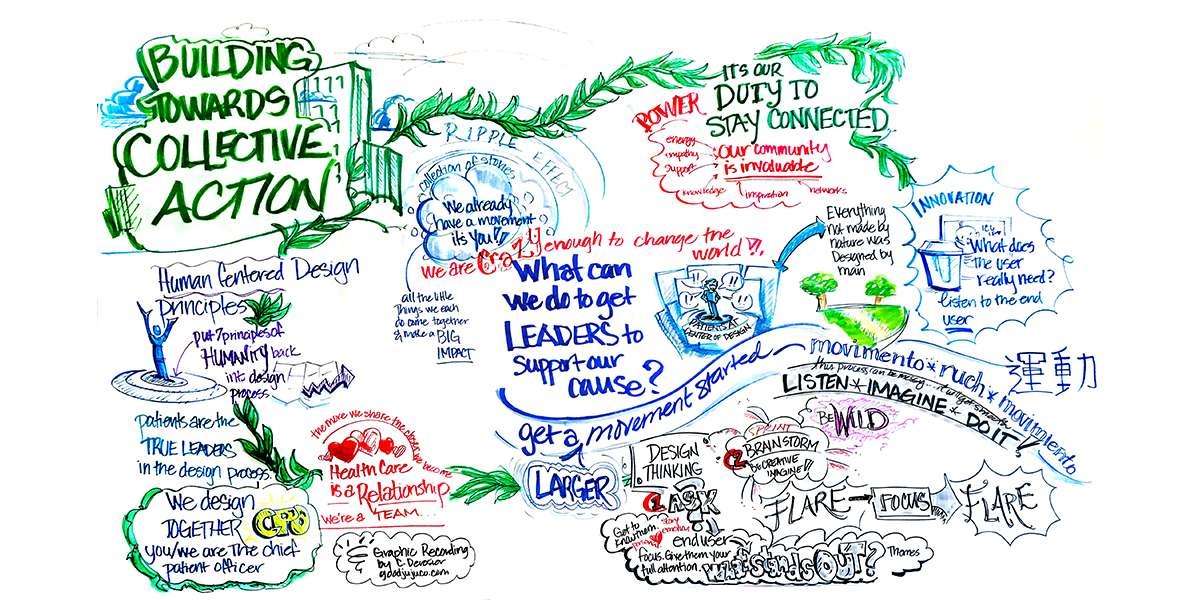 BUILDING
TOWARDS
COLLECTIVE
ACTION
Human Centered Design
principles
put principles of
HUMANITY back
into design
process
patients are the
TRUE LEADERS
in the design process
We design
TOGETHER
CPO
you/we are the chief
patient officer
the more we share the closer we become
HealthCare
is a Relationship
we're a TEAM...
Graphic Recording
by C. Devoser
goodjujuco.com
RIPPLE EFFECT
collection of stories
We already
have a movement
its you!!
all the little
things we each
do come together
& make a BIG
IMPACT
we are Crazy enough to change the
world!!
What can
we do to get
LEADERS to
support our
cause?
get a movement started
LARGER
POWER
energy
empathy
support
knowledge
inspiration
networks
ITS OUR
DUTY TO
STAY CONNECTED
our community
is invaluable
PATIENTS AT
CENTER OF DESIGN
Everything
not made by
nature was
Designed by
main
INNOVATION
What does
the user
really need?
listen to the end
user
movimento * ruch * movimiento
運動
this process can be messy...
LISTEN * IMAGINE * DO IT!!
DESIGN
THINKING
1. ASK
end user
Got to
know them
story
emotion
focus. Give them your
full attention.
SPRINT
2 BRAINSTORM
BE CREATIVE
IMAGINE!!
BE WILD
FLARE
FOCUS
FLARE
what stands OUT?
Themes